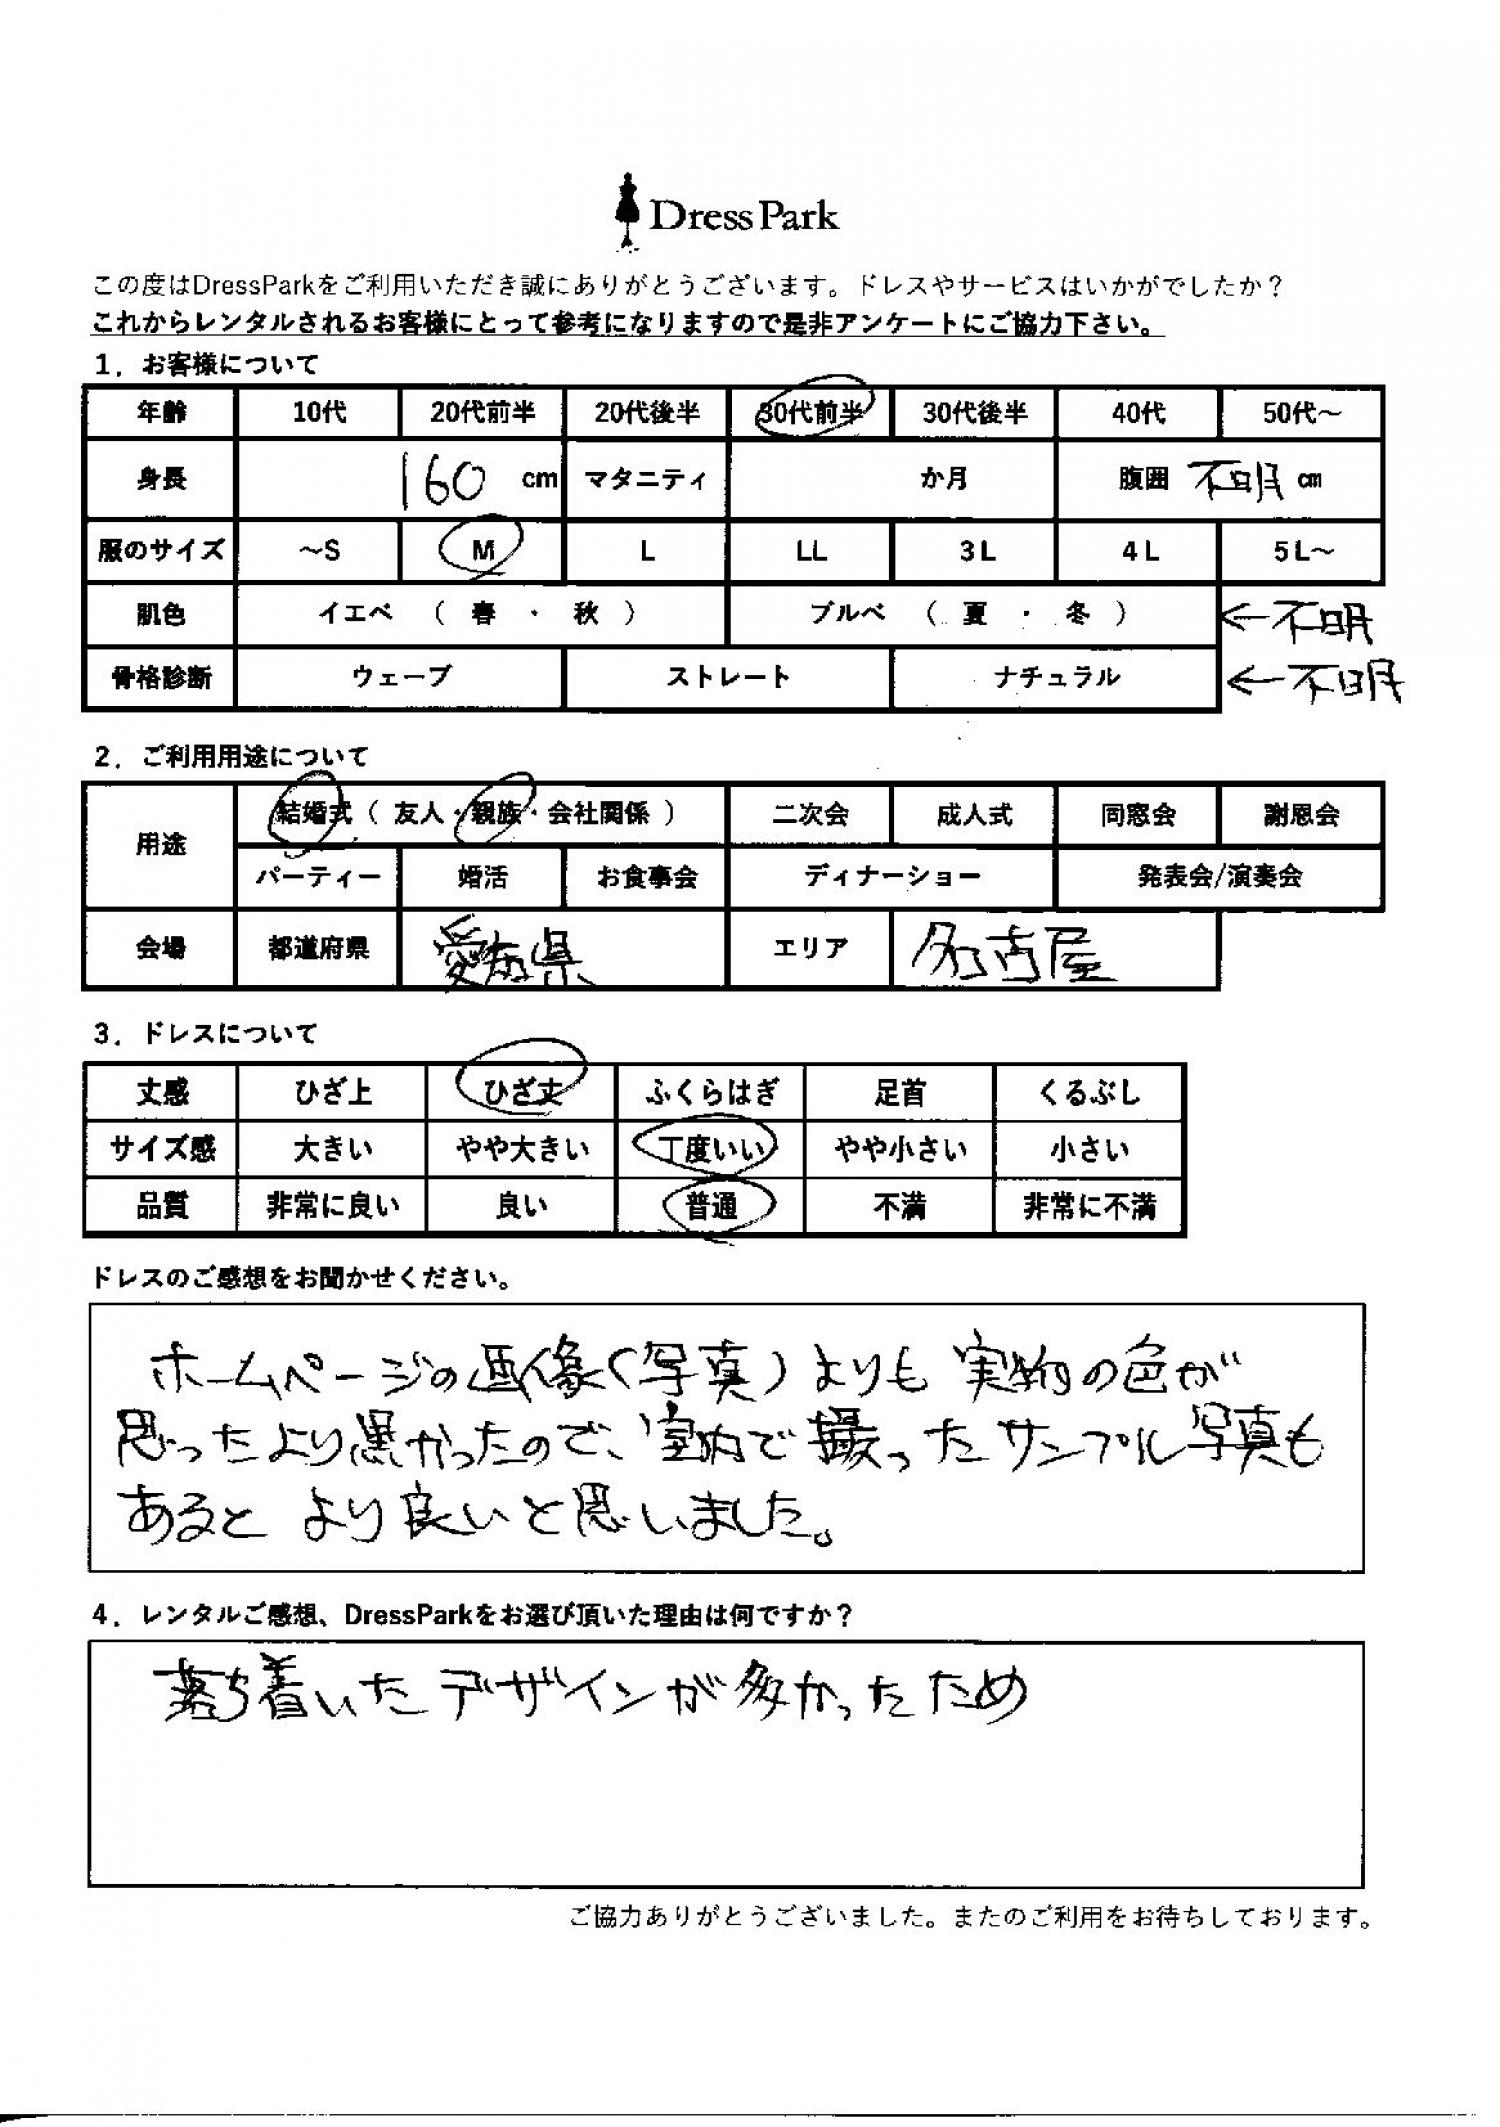 Dress Park
この度はDressParkをご利用いただき誠にありがとうございます。ドレスやサービスはいかがでしたか？
これからレンタルされるお客様にとって参考になりますので是非アンケートにご協力下さい。
1．お客様について
年齢 10代 20代前半 20代後半 30代前半 30代後半 40代 50代～
身長 160 cm マタニティ か月 腹囲 不明 cm
服のサイズ ～S M L LL 3L 4L 5L～
肌色 イエベ （ 春 ・ 秋 ） ブルベ （ 夏 ・ 冬 ） ←不明
骨格診断 ウェーブ ストレート ナチュラル ←不明
2．ご利用用途について
用途 結婚式（ 友人・親族・会社関係 ） 二次会 成人式 同窓会 謝恩会
パーティー 婚活 お食事会 ディナーショー 発表会/演奏会
会場 都道府県 愛知県 エリア 名古屋
3．ドレスについて
丈感 ひざ上 ひざ丈 ふくらはぎ 足首 くるぶし
サイズ感 大きい やや大きい 丁度いい やや小さい 小さい
品質 非常に良い 良い 普通 不満 非常に不満
ドレスのご感想をお聞かせください。
ホームページの画像(写真)よりも実物の色が
思ったより黒かったので、室内で撮ったサンプル写真も
あると より良いと思いました。
4．レンタルご感想、DressParkをお選び頂いた理由は何ですか？
落ち着いたデザインが多かったため
ご協力ありがとうございました。またのご利用をお待ちしております。